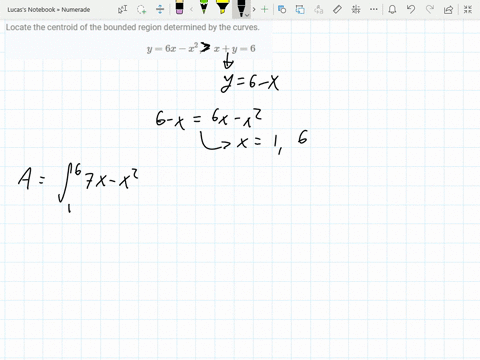 Lucas's Notebook » Numerade
Locate the centroid of the bounded region determined by the curves.
y = 6x − x² > x + y = 6
y = 6 − x
6 − x = 6x − x²
x = 1, 6
A = ∫₁⁶ 7x − x²